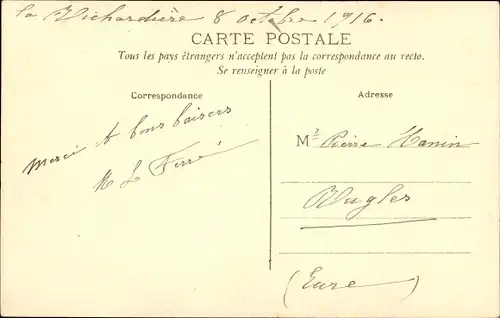 la Richardière 8 octobre 1916.
CARTE POSTALE
Tous les pays étrangers n'acceptent pas la correspondance au recto.
Se renseigner à la poste
Correspondance
Merci et bons baisers
M L Ferré
Adresse
Mr Pierre Hanin
Rugles
(Eure)